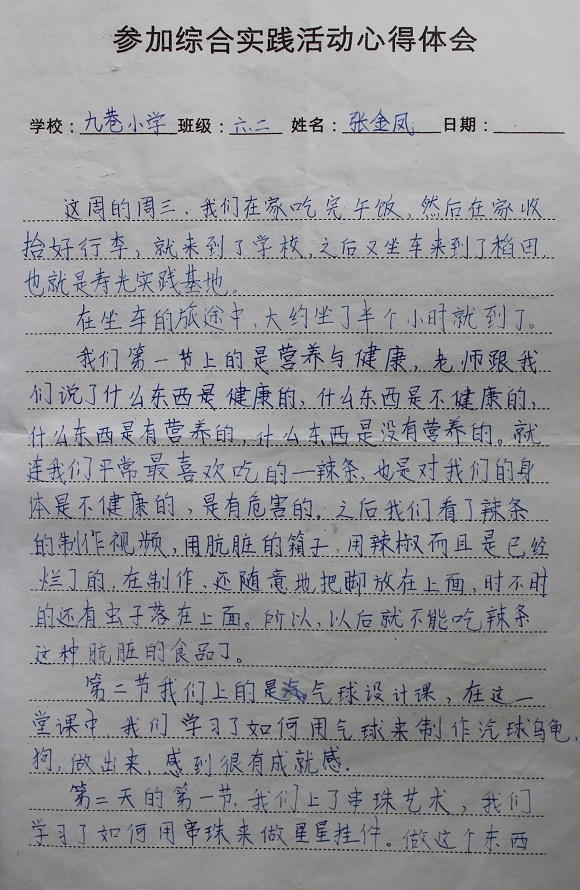 参加综合实践活动心得体会
学校：九巷小学 班级：六.二 姓名：张金凤 日期：
这周的周三，我们在家吃完午饭，然后在家收
拾好行李，就来到了学校，之后又坐车来到了稻田，
也就是寿光实践基地。
在坐车的旅途中，大约坐了半个小时就到了。
我们第一节上的是营养与健康，老师跟我
们说了什么东西是健康的，什么东西是不健康的，
什么东西是有营养的，什么东西是没有营养的。就
连我们平常最喜欢吃的—辣条，也是对我们的身
体是不健康的，是有危害的。之后我们看了辣条
的制作视频，用肮脏的箱子，用辣椒而且是已经
烂了的，在制作，还随意地把脚放在上面，时不时
的还有虫子落在上面。所以，以后就不能吃辣条
这种肮脏的食品了。
第二节我们上的是气球设计课，在这一
堂课中，我们学习了如何用气球来制作汽球乌龟，
狗，做出来，感到很有成就感。
第二天的第一节，我们上了串珠艺术，我们
学习了如何用串珠来做星星挂件。做这个东西